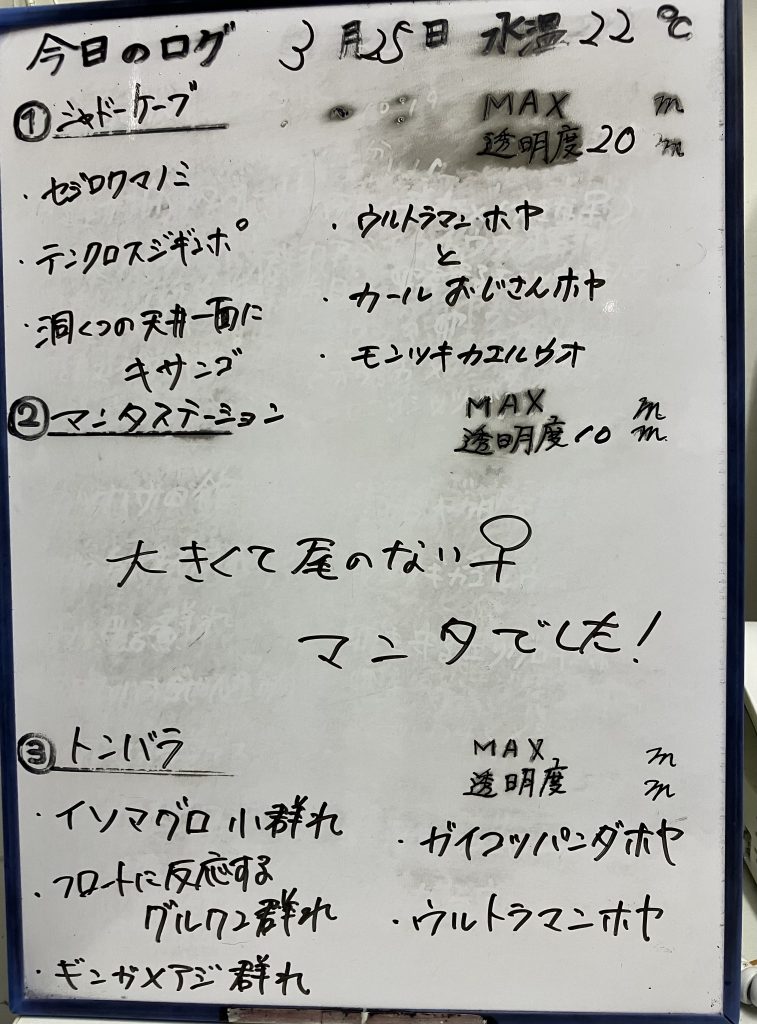 今日のログ 3月25日 水温22℃
① シャドーケーブ
MAX m
透明度20 m
・セジロクマノミ
・テンクロスジギンポ
・洞くつの天井一面に
キサンゴ
・ウルトラマンホヤ
と
・カールおじさんホヤ
・モンツキカエルウオ
② マンタステーション
MAX m
透明度10 m
大きくて尾のない♀
マンタでした!
③ トンバラ
MAX m
透明度 m
・イソマグロ 小群れ
・フロートに反応する
グルクン群れ
・ギンガメアジ群れ
・ガイコツパンダホヤ
・ウルトラマンホヤ